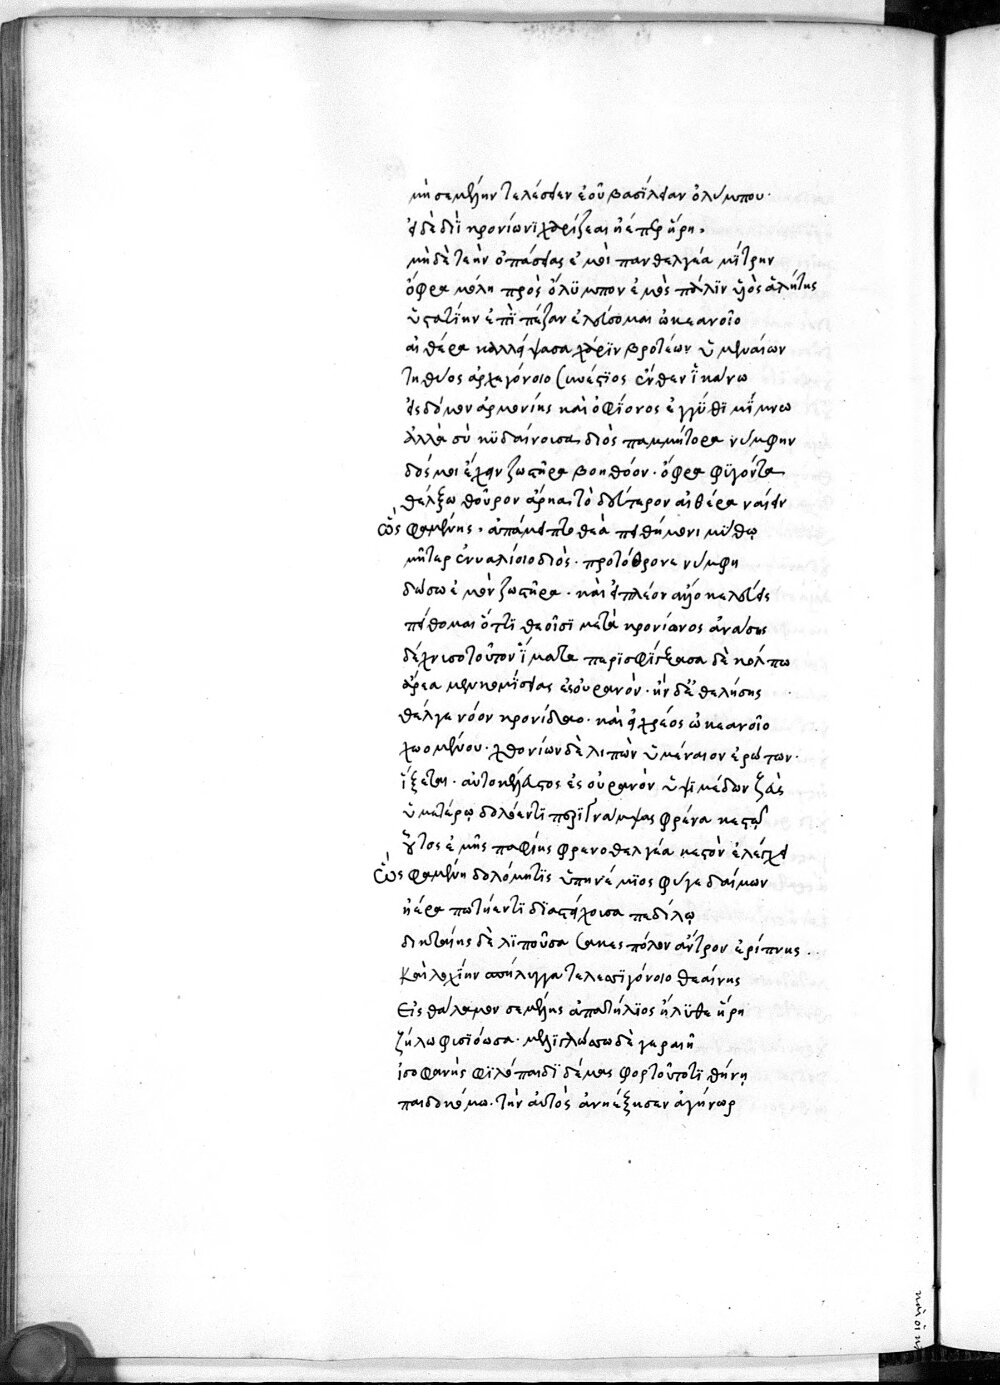 μὴ σεμέλην τελέσειεν ἑοῦ βασίλειαν ὀλύμπου·
εἰ δὲ διῒ κρονίωνϊ χαρίζεαι ἠέ περ ἥρη,
μὴ δὲ τεὴν ὀπάσειας ἐμοὶ πανθελγέα μίτρην
ὄφρα μόλη πρὸς ὄλϋμπον ἐμὸς πάλϊν υἱὸς ἀλήτης
ὑστατίην ἐπῒ πέζαν ἐλεύσομαι ὠκεανοῖο
αἰθέρα καλλείψασα χάρϊν βροτέων ὑμεναίων
τηθύος ἀρχεγόνοιο συνέστϊος ἔνθεν ἱκάνω
εἰς δόμον ἁρμονίης καὶ ὀφίονος ἐγγύθϊ μίμνω
ἀλλὰ σὺ κϋδαίνουσα διὸς παμμήτορα νύμφην
δός μοι ἔχειν ζωστῆρα βοηθόον· ὄφρα φϋγόντα
θέλξω θοῦρον ἄρηα τὸ δεύτερον αἰθέρα ναίειν
ὣς φαμένης, ἀπάμειπτο θεὰ πειθήμονι μύθῳ
μῆτερ ἐνυαλίοιο διὸς· πρωτόθρονε νύμφη
δώσω ἐμὸν ζωστῆρα· καὶ εἰ πλέον αὖ με κελεύεις
πείθομαι ὅττϊ θεοῖσϊ μετὰ κρονίωνος ἀνάσσης
δέχνυσο τοῦτον ἱμάντα περϊσφίγξασα δὲ κόλπω
ἄρεα μὲν κομίσειας ἐς οὐρανὸν· ἢν δ' ἐθελήσης
θέλγε νόον κρονίδαο· καὶ εἰ χρέος ὠκεανοῖο
χωομένου· χθονίων δὲ λιπὼν ὑμέναιον ἐρώτων·
ἵξεται· αὐτοκέλευστος ἐς οὐρανὸν ὑψϊμέδων ζεὺς
ὑμετέρῳ δολόεντϊ περιγνάμψας φρένα κεστῷ
οὗτος ἐμῆς παφίης φρενοθελγέα κεστὸν ἐλέγχει
ὣς φαμένη δολόμητϊς ὑπηνέμϊος φύγε δαίμων
ἠέρα πωτήεντϊ δϊαστείχουσα πεδίλῳ
δικταίης δὲ λϊποῦσα σακεσπάλον ἄντρον ἐρίπνης·
καὶ λοχίην σπήλυγγα τελεσσϊγόνοιο θεαίνης
εἰς θάλαμον σεμέλης ἀπατήλϊος ἤλϋθε ἥρη
ζήλω φυσϊόωσα· μελϊγλώσσω δὲ γεραιῇ
ἰσοφανὴς φϊλόπαιδϊ δέμας φορτοῦτοτϊ θήνῃ
παιδοκόμω· τὴν αὐτὸς ἀνηέξησεν ἀγήνωρ